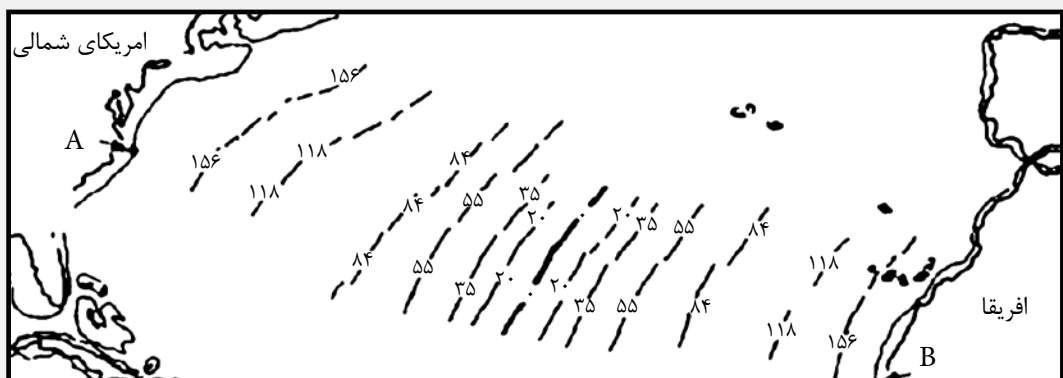 امریکای شمالی
۱۵۶
۱۵۶
۱۱۸
۱۱۸
A
۸۴
۸۴
۸۴
۵۵
۵۵
۳۵
۳۵
۲۰
۲۰
۰
۰
۲۰
۲۰
۳۵
۳۵
۵۵
۵۵
۸۴
۸۴
۱۱۸
۱۱۸
۱۵۶
افریقا
B